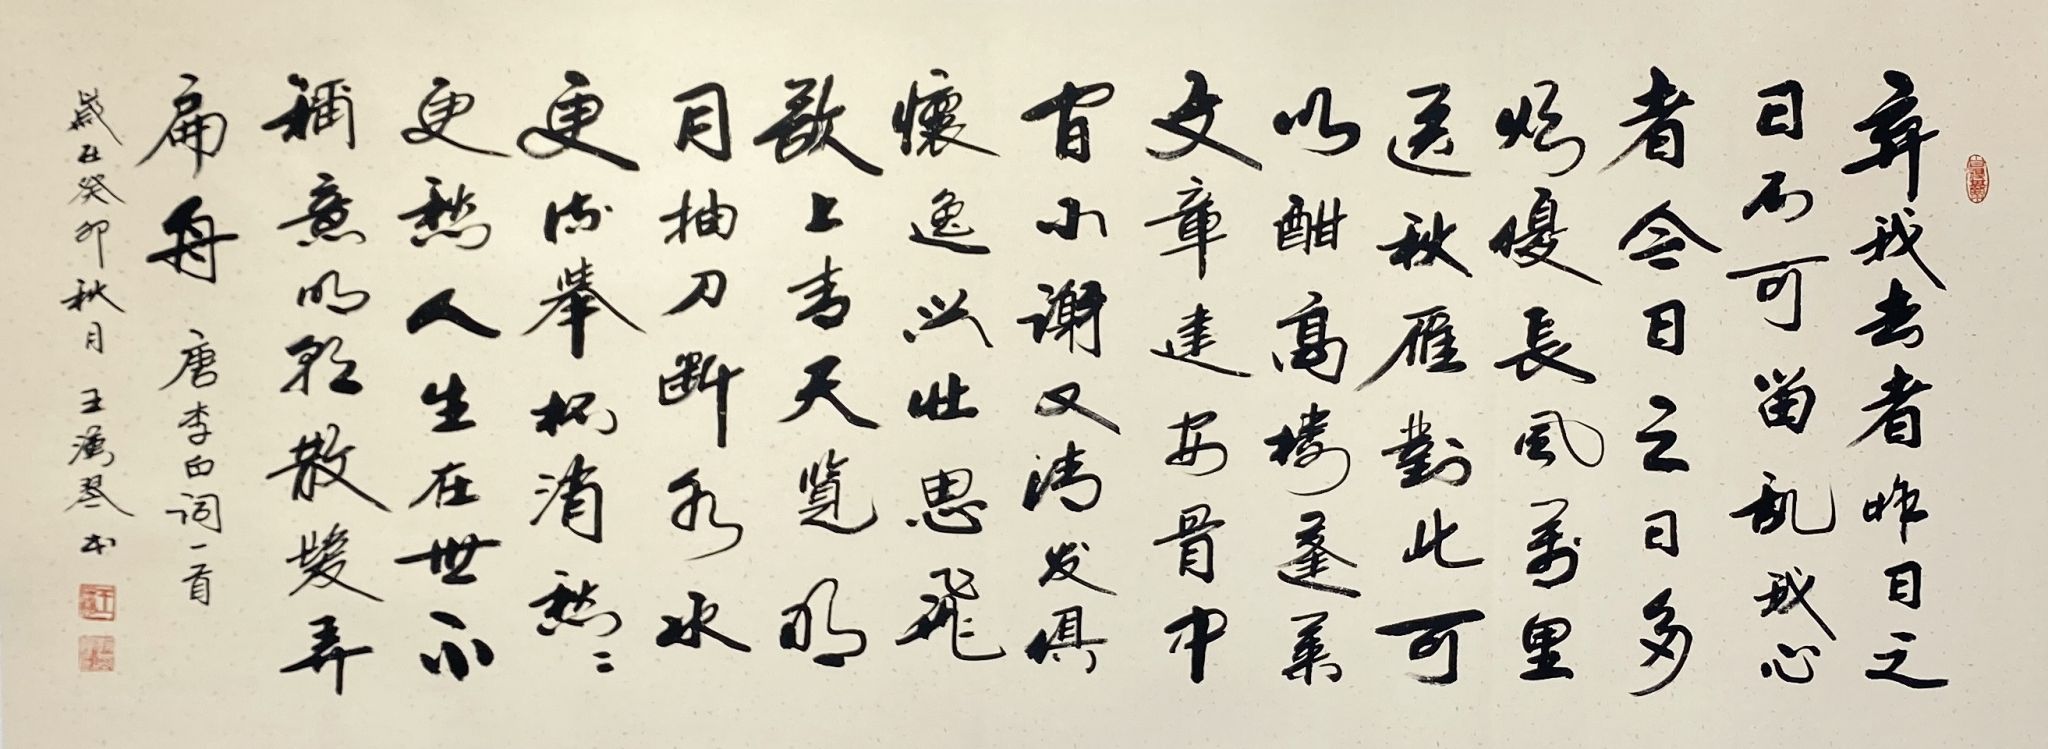 弃我去者昨日之
日不可留乱我心
者今日之日多
煩憂長風萬里
送秋雁對此可
以酣高樓蓬萊
文章建安骨中
间小謝又清发俱
懷逸兴壯思飛
欲上青天览明
月抽刀斷水水
更流舉杯消愁〻
更愁人生在世不
稱意明朝散髮弄
扁舟 唐李白词一首
歲在癸卯秋月 王琴书